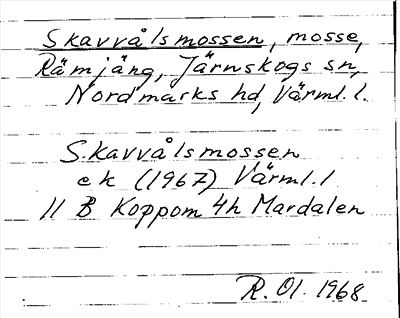 Skavvålsmossen, mosse,
Rämjäng, Järnskogs sn,
Nordmarks hd, Värml. l.
Skavvålsmossen
ek (1967) Värml. l
11 B Koppom 4h Mardalen
R. Ol. 1968